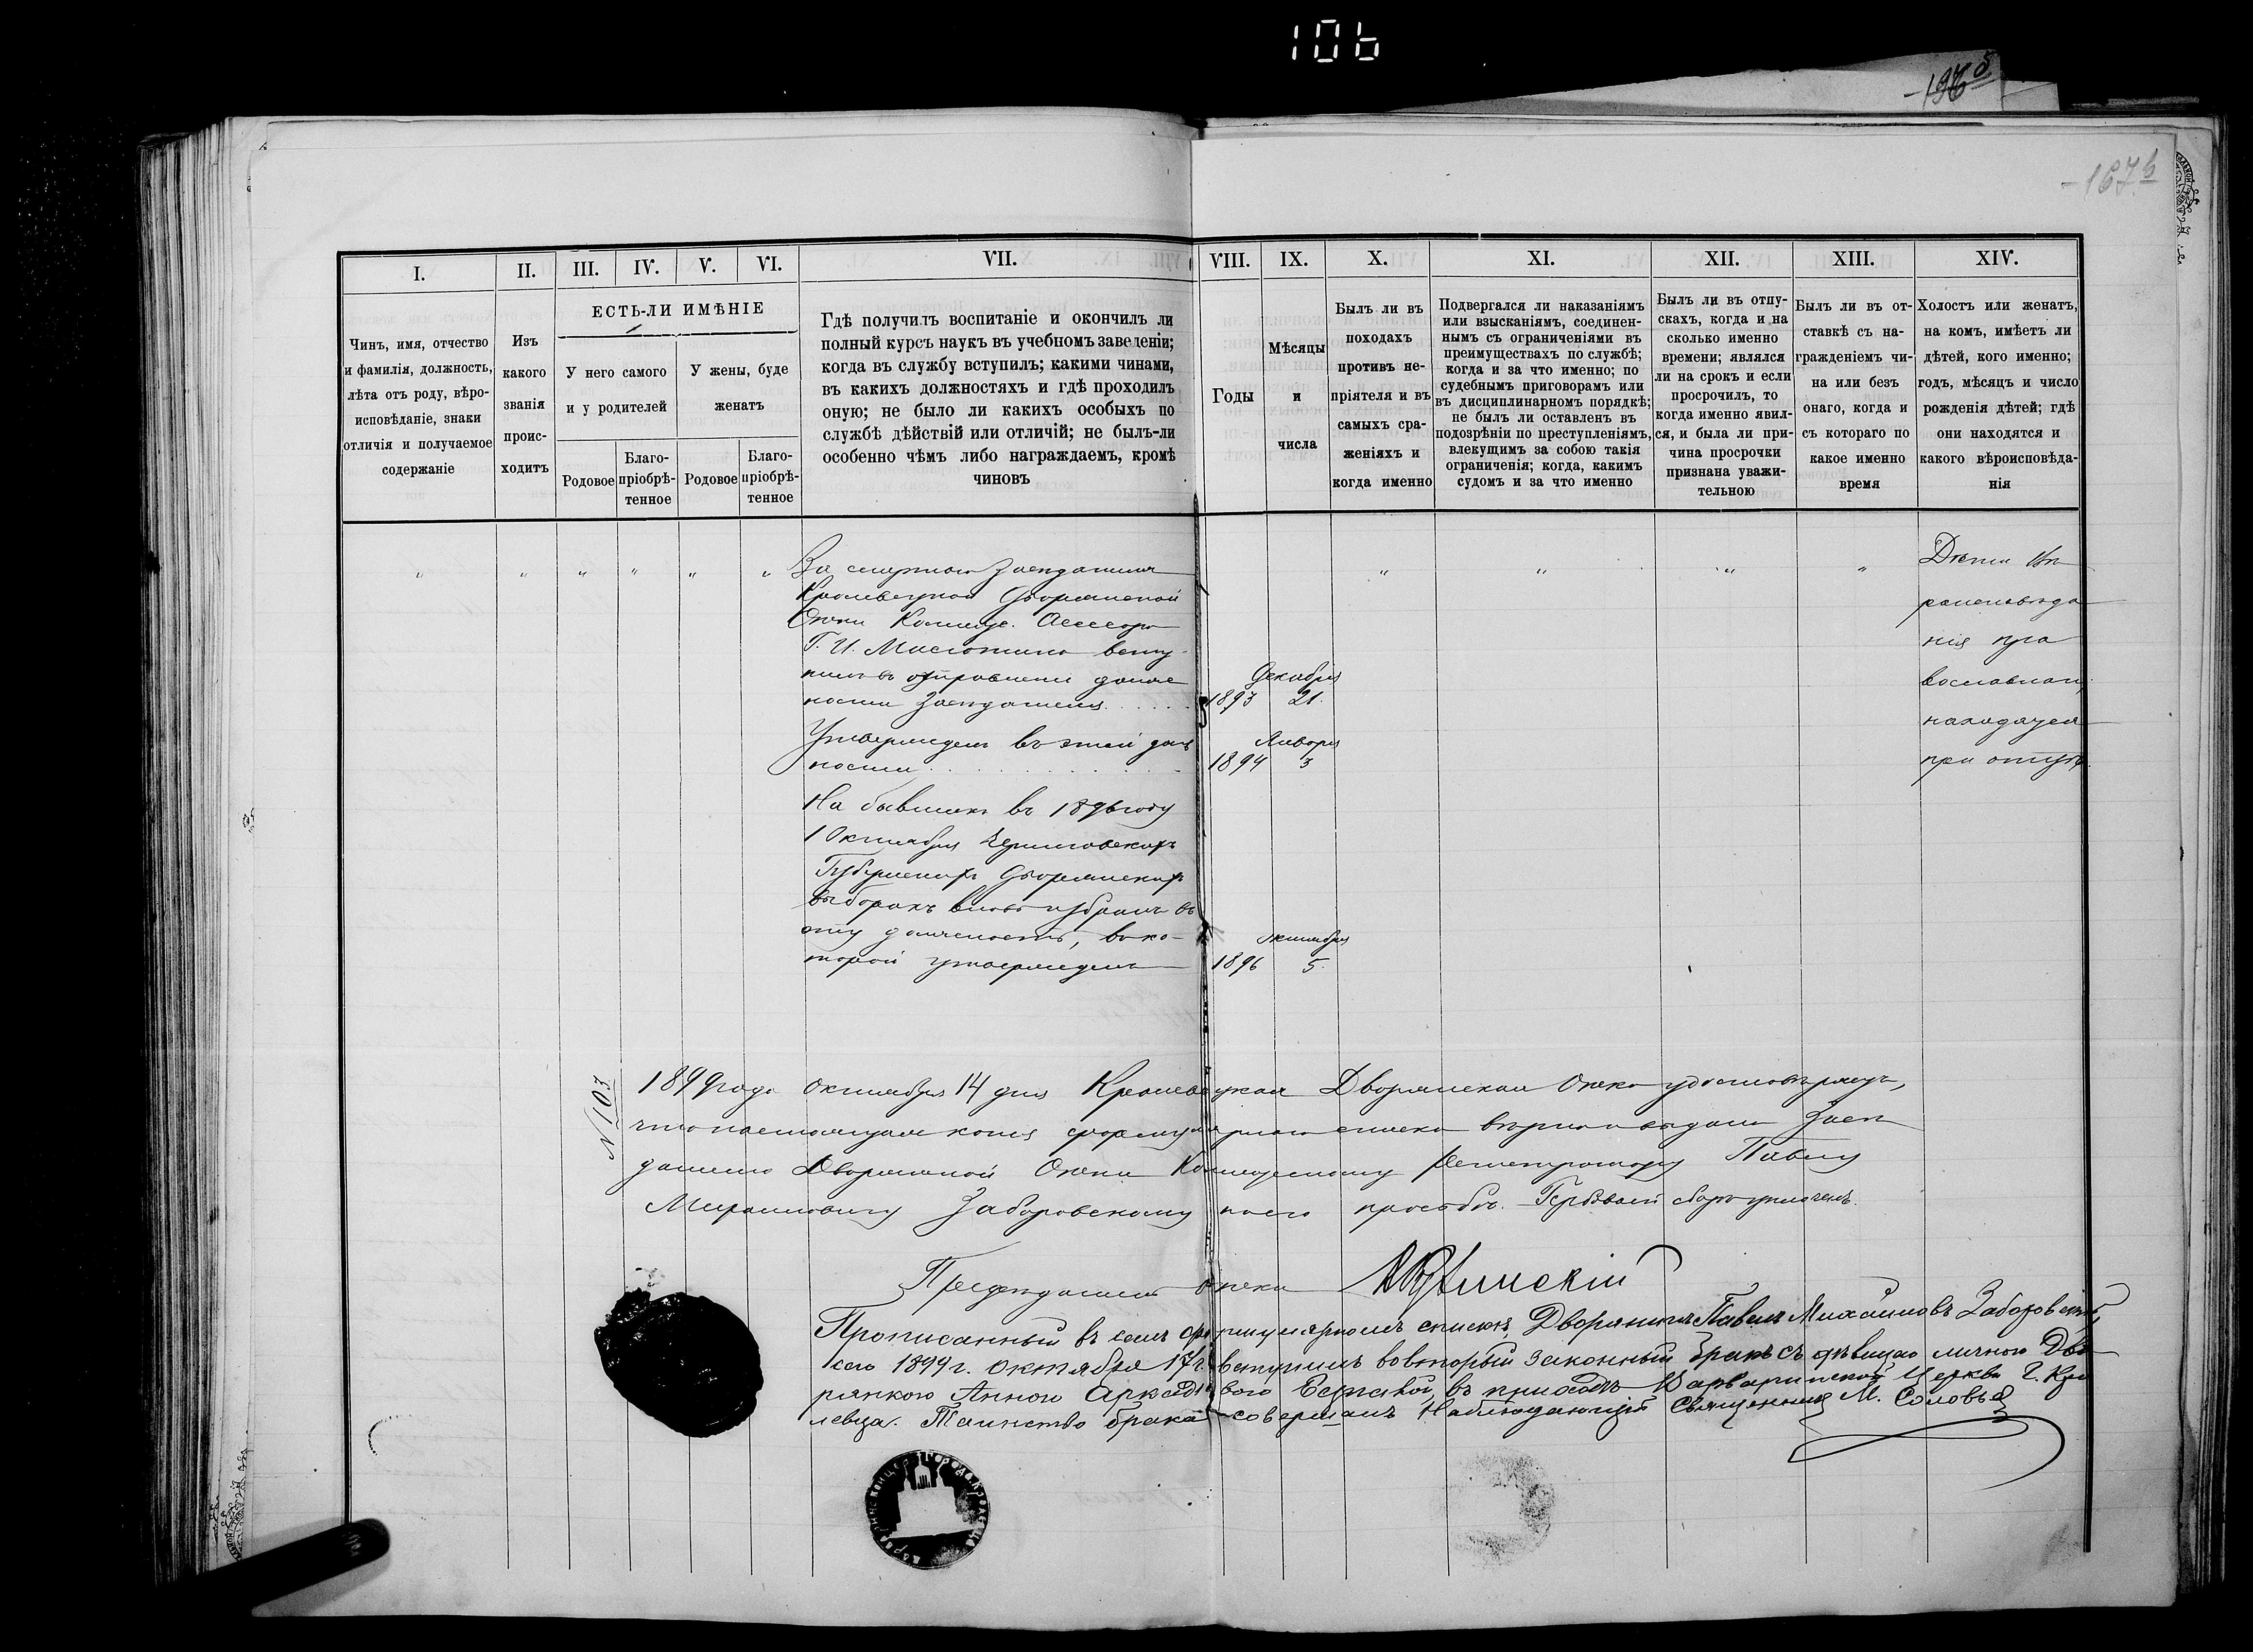 106
167
I. II. III. IV. V. VI. VII. VIII. IX. X. XI. XII. XIII. XIV.
Чинъ, имя, отчество
и фамилія, должность,
лѣта отъ роду, вѣро-
исповѣданіе, знаки
отличія и получаемое
содержаніе
Изъ
какого
званія
проис-
ходитъ
ЕСТЬ-ЛИ ИМѢНІЕ
У него самого
и у родителей
У жены, буде
женатъ
Родовое
Благо-
пріобрѣ-
тенное
Родовое
Благо-
пріобрѣ-
тенное
Гдѣ получилъ воспитаніе и окончилъ ли
полный курсъ наукъ въ учебномъ заведеніи;
когда въ службу вступилъ; какими чинами,
въ какихъ должностяхъ и гдѣ проходилъ
оную; не было ли какихъ особыхъ по
службѣ дѣйствій или отличій; не былъ-ли
особенно чѣмъ либо награждаемъ, кромѣ
чиновъ
Годы
Мѣсяцы
и
числа
Былъ ли въ
походахъ
противъ не-
пріятеля и въ
самыхъ сра-
женіяхъ и
когда именно
Подвергался ли наказаніямъ
или взысканіямъ, соединен-
нымъ съ ограниченіями въ
преимуществахъ по службѣ;
когда и за что именно; по
судебнымъ приговорамъ или
въ дисциплинарномъ порядкѣ;
не былъ ли оставленъ въ
подозрѣніи по преступленіямъ,
влекущимъ за собою такія
ограниченія; когда, какимъ
судомъ и за что именно
Былъ ли въ отпу-
скахъ, когда и на
сколько именно
времени; являлся
ли на срокъ и если
просрочилъ, то
когда именно явил-
ся, и была ли при-
чина просрочки
признана уважи-
тельною
Былъ ли въ от-
ставкѣ съ на-
гражденіемъ чи-
на или безъ
онаго, когда и
съ котораго по
какое именно
время
Холостъ или женатъ,
на комъ, имѣетъ ли
дѣтей, кого именно;
годъ, мѣсяцъ и число
рожденія дѣтей; гдѣ
они находятся и
какого вѣроисповѣда-
нія
За смертію Засѣдателя
Кролевецкой Дворянской
Опеки Коллеж. Ассесора
Г. И. всту-
пилъ въ отправленіе долж
ности Засѣдателя
Декабря
1893 21.
Утвержденъ въ этой долж
ности
Января
1894 3
На бывшихъ въ 1896 году
1 Октября Черниговскихъ
Губернскихъ Дворянскихъ
выборахъ вновь избранъ въ
эту должность, въ ко-
торой утвержденъ
Октября
1896 5.
Дѣти вѣ
роисповѣда
нія пра
вославнаго,
находятся
при отцѣ.
N 103
1899 года Октября 14 дня Кролевецкая Дворянская Опека удостовѣряетъ,
что настоящая копія формулярнаго списка вѣрна и выдана Засѣ
дателю Дворянской Опеки Коллежскому Регистратору Павлу
Михаиловичу Заборовскому по его просьбѣ. Гербовый сборъ уплаченъ.
Предсѣдатель Опеки
Прописанный въ семъ формулярномъ спискѣ, Дворянинъ Павелъ Михаиловъ Заборовскій,
сего 1899 г. октября 17 г. вступилъ во вторый законный бракъ съ дѣвицею личною Дво
рянкою Анною Аркадіевою въ приходѣ Варваринской Церкви Г. Кро
левца. Таинство брака совершалъ Наблюдающій Священникъ М. Соловьевъ